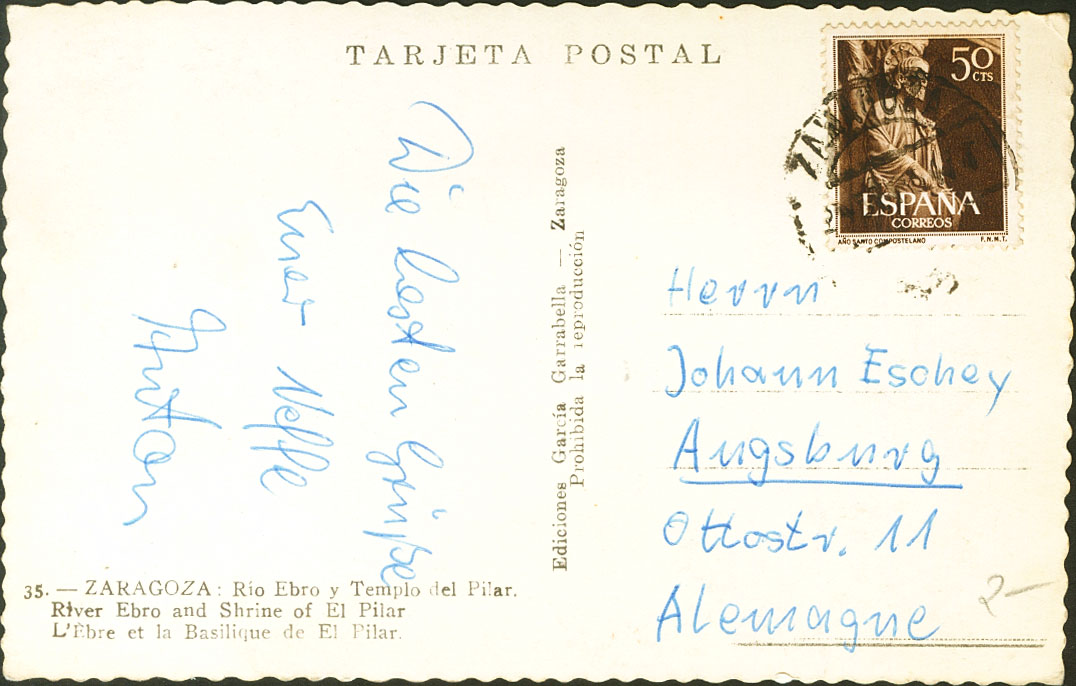 TARJETA POSTAL
50 CTS
ESPAÑA
CORREOS
AÑO SANTO COMPOSTELANO F.N.M.T.
Die besten Grüße
Euer Neffe
Ediciones García Garrabella — Zaragoza
Prohibida la reproducción
Herrn
Johann Eschey
Augsburg
Ottostr. 11
Alemagne
2-
35. — ZARAGOZA: Río Ebro y Templo del Pilar.
River Ebro and Shrine of El Pilar
L'Èbre et la Basilique de El Pilar.